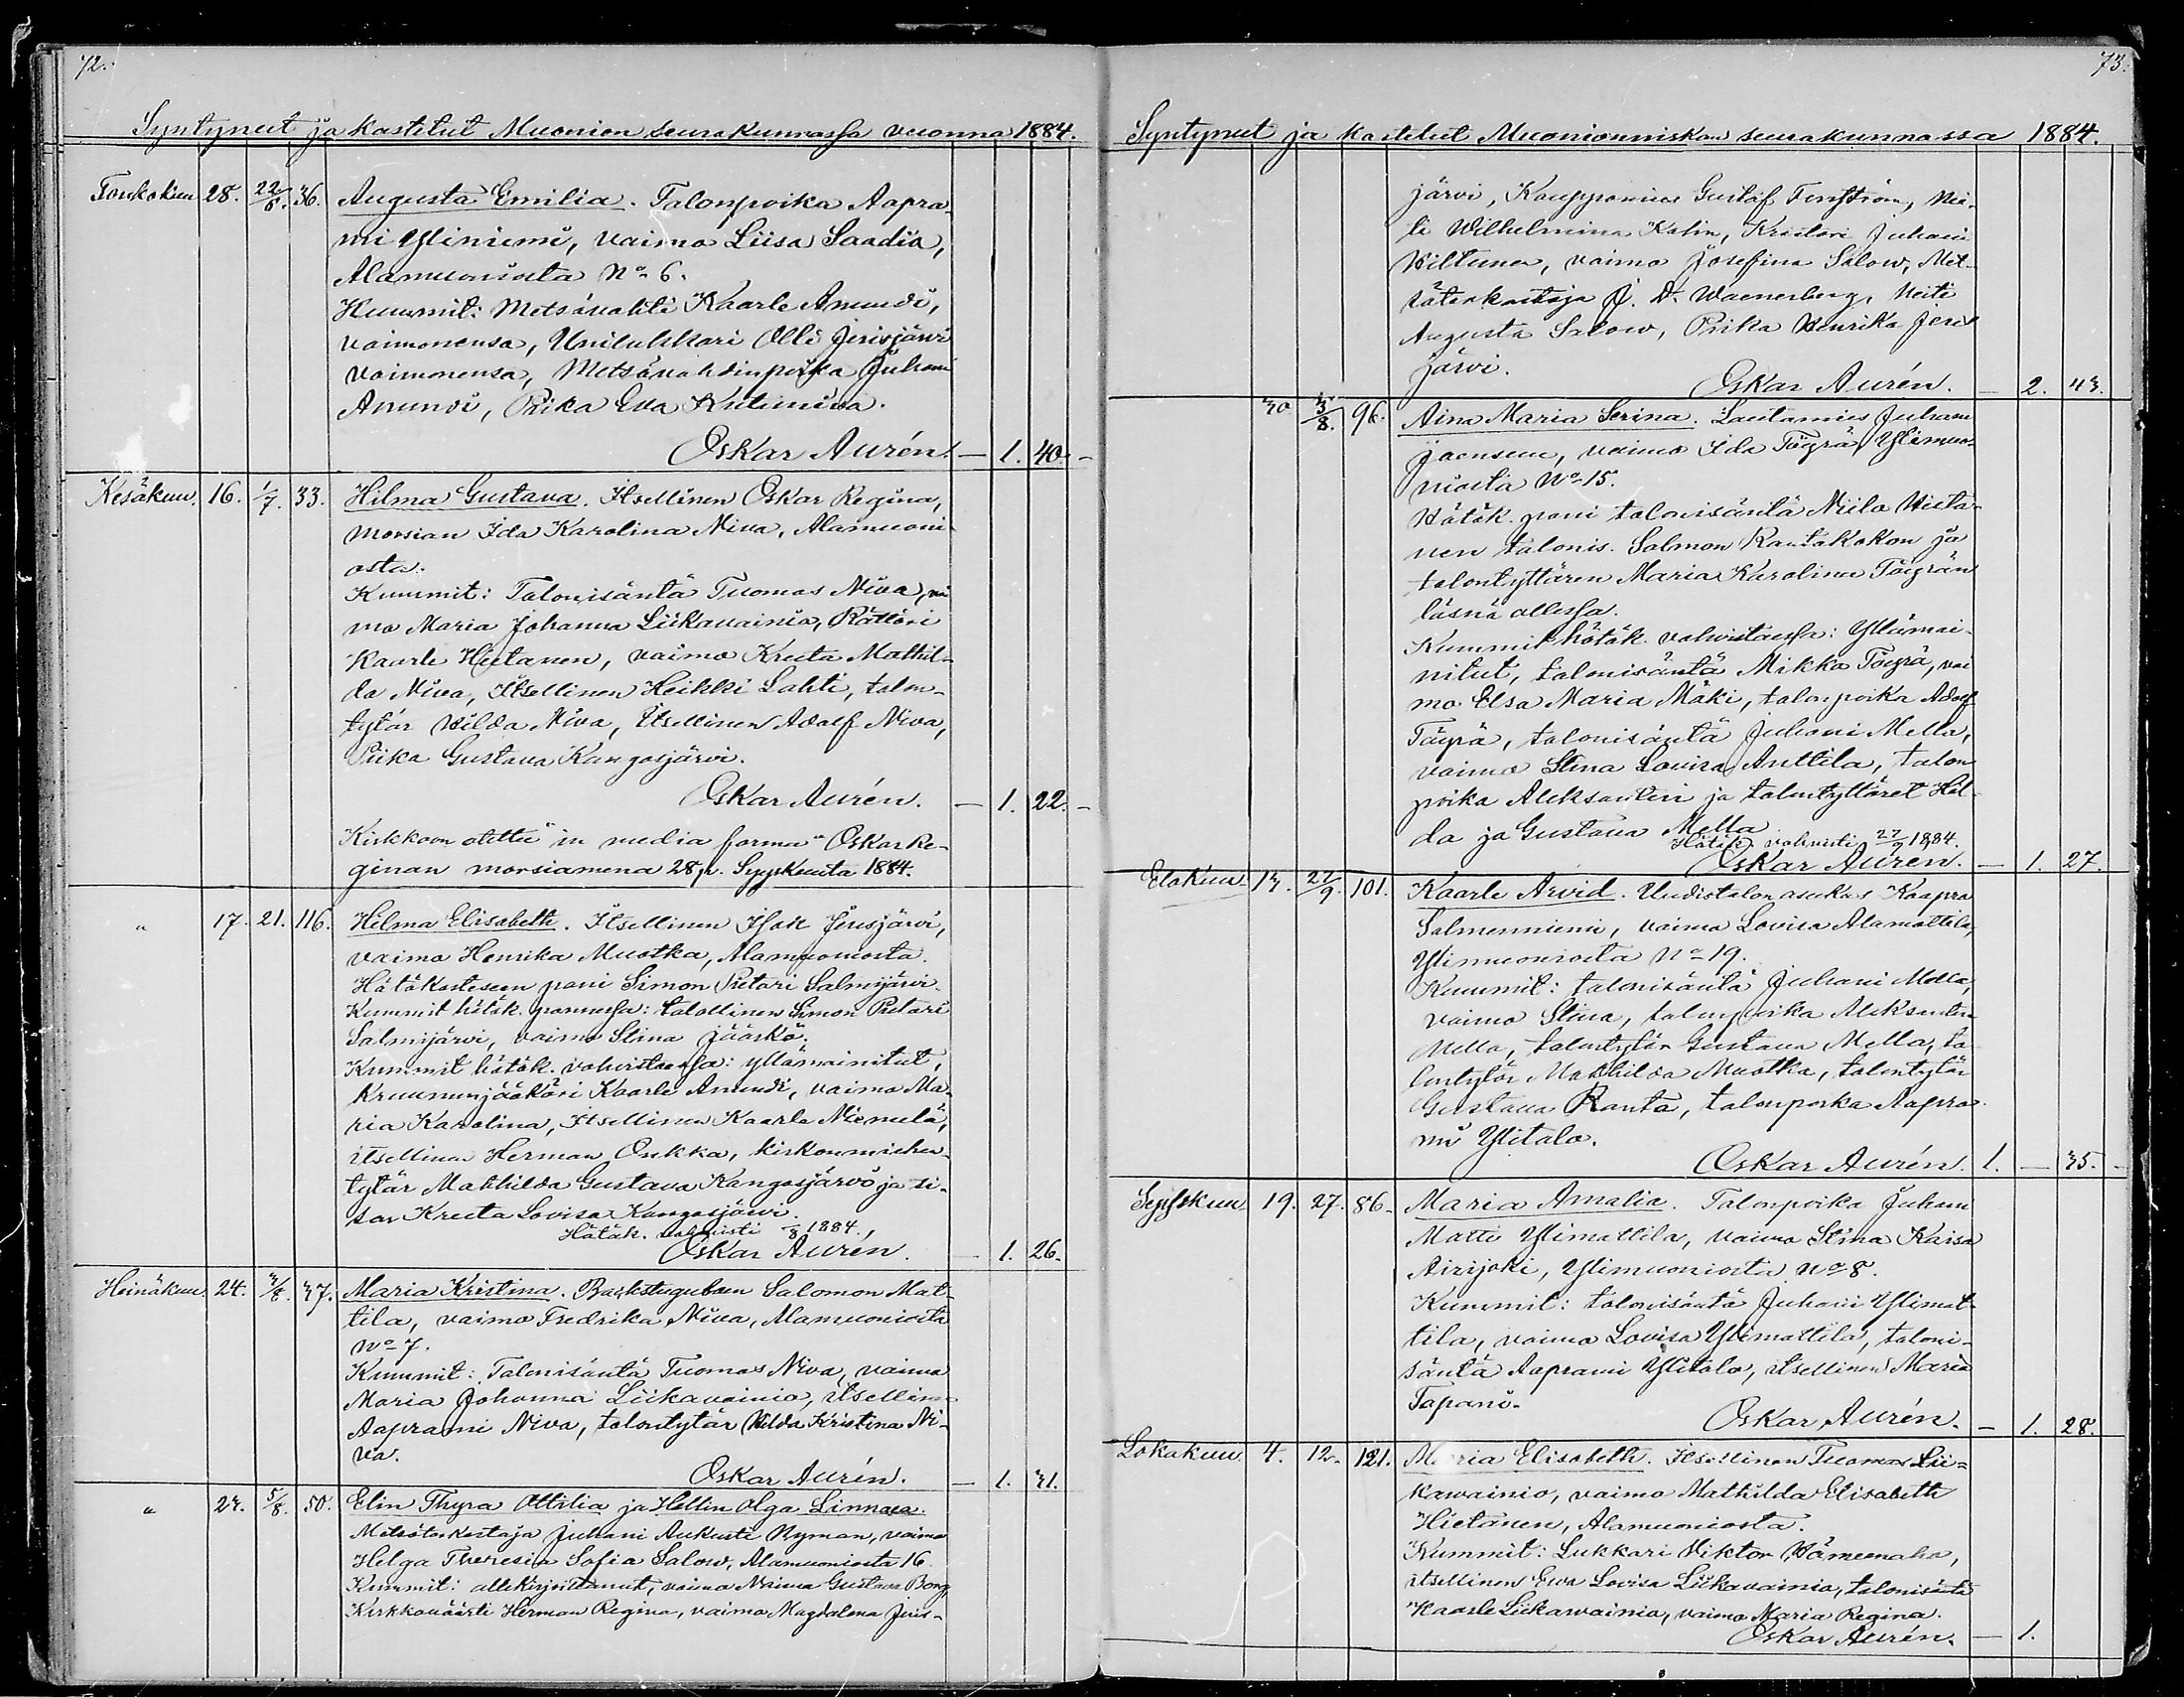 72.
Syntyneet ja kastetut Muonion seurakunnassa vuonna 1884.
Toukokuu 28. 22/6. 36. Augusta Emilia. Talonpoika Aapra-
mi Yliniemi, vaimo Liisa Saadia,
Alamuoniosta No 6.
Kummit: Metsävahti Kaarle Anundi,
vaimonensa, Unilukkari Olli Jerisjärvi
vaimonensa, Metsävahdinpoika Juhani
Anundi, Piika Eva Kutuniva.
Oskar Aurén. — 1. 40. —
Kesäkuu. 16. 1/7. 33. Hilma Gustava. Itsellinen Oskar Regina,
morsian Ida Karolina Niva, Alamuoni-
osta.
Kummit: Talonisäntä Tuomas Niva, vai
mo Maria Johanna Liikavainio, Rättäri
Kaarle Hietanen, vaimo Kreeta Mathil-
da Niva, Itsellinen Heikki Lahti, talon-
tytär Hilda Niva, Itsellinen Adolf Niva,
Piika Gustava Kangosjärvi.
Oskar Aurén. — 1. 22. —
Kirkkoon otettu "in media forma" Oskar Re-
ginan morsiamena 28 p. Syyskuuta 1884.
" 17. 21. 116. Hilma Elisabeth. Itsellinen Isak Jerisjärvi,
vaimo Henrika Muotka, Alamuoniosta.
Hätäkasteseen pani Simon Pietari Salmijärvi.
Kummit hätäk. pannessa: talollinen Simon Pietari
Salmijärvi, vaimo Stina Jääskö.
Kummit hätäk. vahvistaessa: yllämainitut,
Kruununjääkäri Kaarle Anundi, vaimo Ma-
ria Karolina, Itsellinen Kaarle Niemelä,
itsellinen Herman Onkka, kirkonmiehen
tytär Mathilda Gustava Kangosjärvi ja si-
sar Kreeta Lovisa Kangosjärvi.
Hätäk. vahvisti /8 1884.,
Oskar Aurén. — 1. 26.
Heinäkuu 24. 3/8. 37. Maria Kristina. Backstugulaen Salomon Mat-
tila, vaimo Fredrika Niva, Alamuoniosta
No 7.
Kummit: Talonisäntä Tuomas Niva, vaimo
Maria Johanna Liikavainio, itsellinen
Aaprami Niva, talontytär Hilda Kristina Ni-
va.
Oskar Aurén. — 1. 31.
" 27. 5/8. 50. Elin Thyra Ottilia ja Hellin Olga Linnaea.
Metsätarkastaja Juhani Aukusti Nyman, vaimo
Helga Theresia Sofia Salow, Alamuoniosta 16.
Kummit: allekirjoittanut, vaimo Naima Gustava Bong,
Kirkkoväärti Herman Regina, vaimo Magdalena Jeris-
73.
Syntynut ja kastetut Muonionniskan seurakunnassa 1884.
järvi, Kauppamies Gustaf Forsström, Nei-
ti Wilhelmina Kohn, Krister Juhani
Wiltuna, vaimo Josefina Salow, Met-
sätarkastaja J. D. Waenerberg, Neiti
Augusta Salow, Piika Henrika Jeris
järvi.
Oskar Aurén. — 2. 43.
30 3/8. 96. Aina Maria Serina. Lautamies Juhani
Joensuu, vaimo Ida Töyrä, Ylimuo-
niosta No 15.
Hätäk. pani talonisäntä Niilo Hieta-
nen talonis. Salmon Rautakokon ja
talontyttären Maria Karolina Töyrän
läsnä ollessa.
Kummit hätäk. vahvistaessa: Yllämai-
nitut, talonisäntä Mikko Töyrä, vai
mo Elsa Maria Mäki, talonpoika Adolf
Töyrä, talonisäntä Juhani Mella,
vaimo Stina Lovisa Anttila, talon
poika Aleksanteri ja talontyttäret Hil-
da ja Gustava Mella
Hätäk. vahvisti 1884.
Oskar Aurén. — 1. 27.
Elokuu 13. 21/9. 101. Kaarle Arvid. Uudistalon asukas Kaapra
Salmenniemi, vaimo Lovisa Alamattila,
Ylimuoniosta No 19.
Kummit: talonisäntä Juhani Mella,
vaimo Stina, talonpoika Aleksanteri
Mella, talontytär Gustava Mella, ta-
lontytär Mathilda Muotka, talontytär
Gustava Ranta, talonpoika Aapra-
mi Ylitalo.
Oskar Aurén. 1. — 35. —
Syyskuu 19. 27. 86. Maria Amalia. Talonpoika Juhani
Matti Ylimattila, vaimo Stina Kaisa
Airijoki, Ylimuoniosta No 8.
Kummit: talonisäntä Juhani Ylimat-
tila, vaimo Lovisa Ylimattila, taloni-
säntä Aaprami Ylitalo, itsellinen Maria
Tapani.
Oskar Aurén. — 1. 28.
Lokakuu 4. 12. 121. Maria Elisabeth. Itsellinen Tuomas Lii-
kawainio, vaimo Mathilda Elisabeth
Hietanen, Alamuoniosta.
Kummit: Lukkari Viktor Hämeenaho,
itsellinen Ewa Lovisa Liikavainio, talonisäntä
Kaarle Liikawainio, vaimo Maria Regina.
Oskar Aurén. — 1.